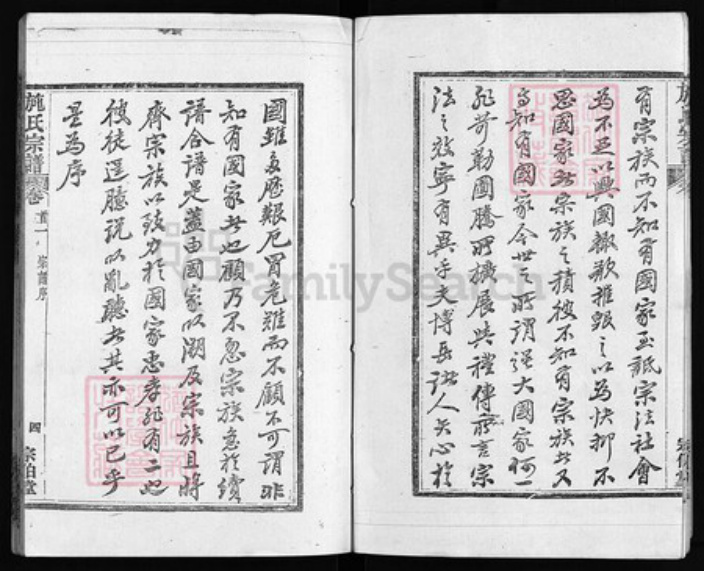 有宗族而不知有國家至詆宗法社會
為不足以興國輒欲摧毀之以為快抑不
思國家者宗族之積彼不知有宗族者又
烏知有國家今世之所謂強大國家何一
非苛勒圖騰所擴展與禮傳所言宗
法之效寧有異乎夫博吾諸人矢心於
國雖多歷艱厄冒危難而不顧不可謂非
知有國家者也顧乃不忽宗族急於續
譜合譜是蓋由國家以溯及宗族且將
齊宗族以致力於國家忠孝非有二也
彼徒逞臆說以亂聽者其亦可以已乎
是為序
施氏宗譜
卷首一
宗譜序
四
FamilySearch